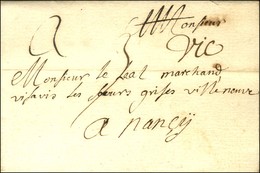 A Monsieur
Vic
Monsieur le Lal marchand
visavis les Sœurs grises ville neuve
a nançÿ